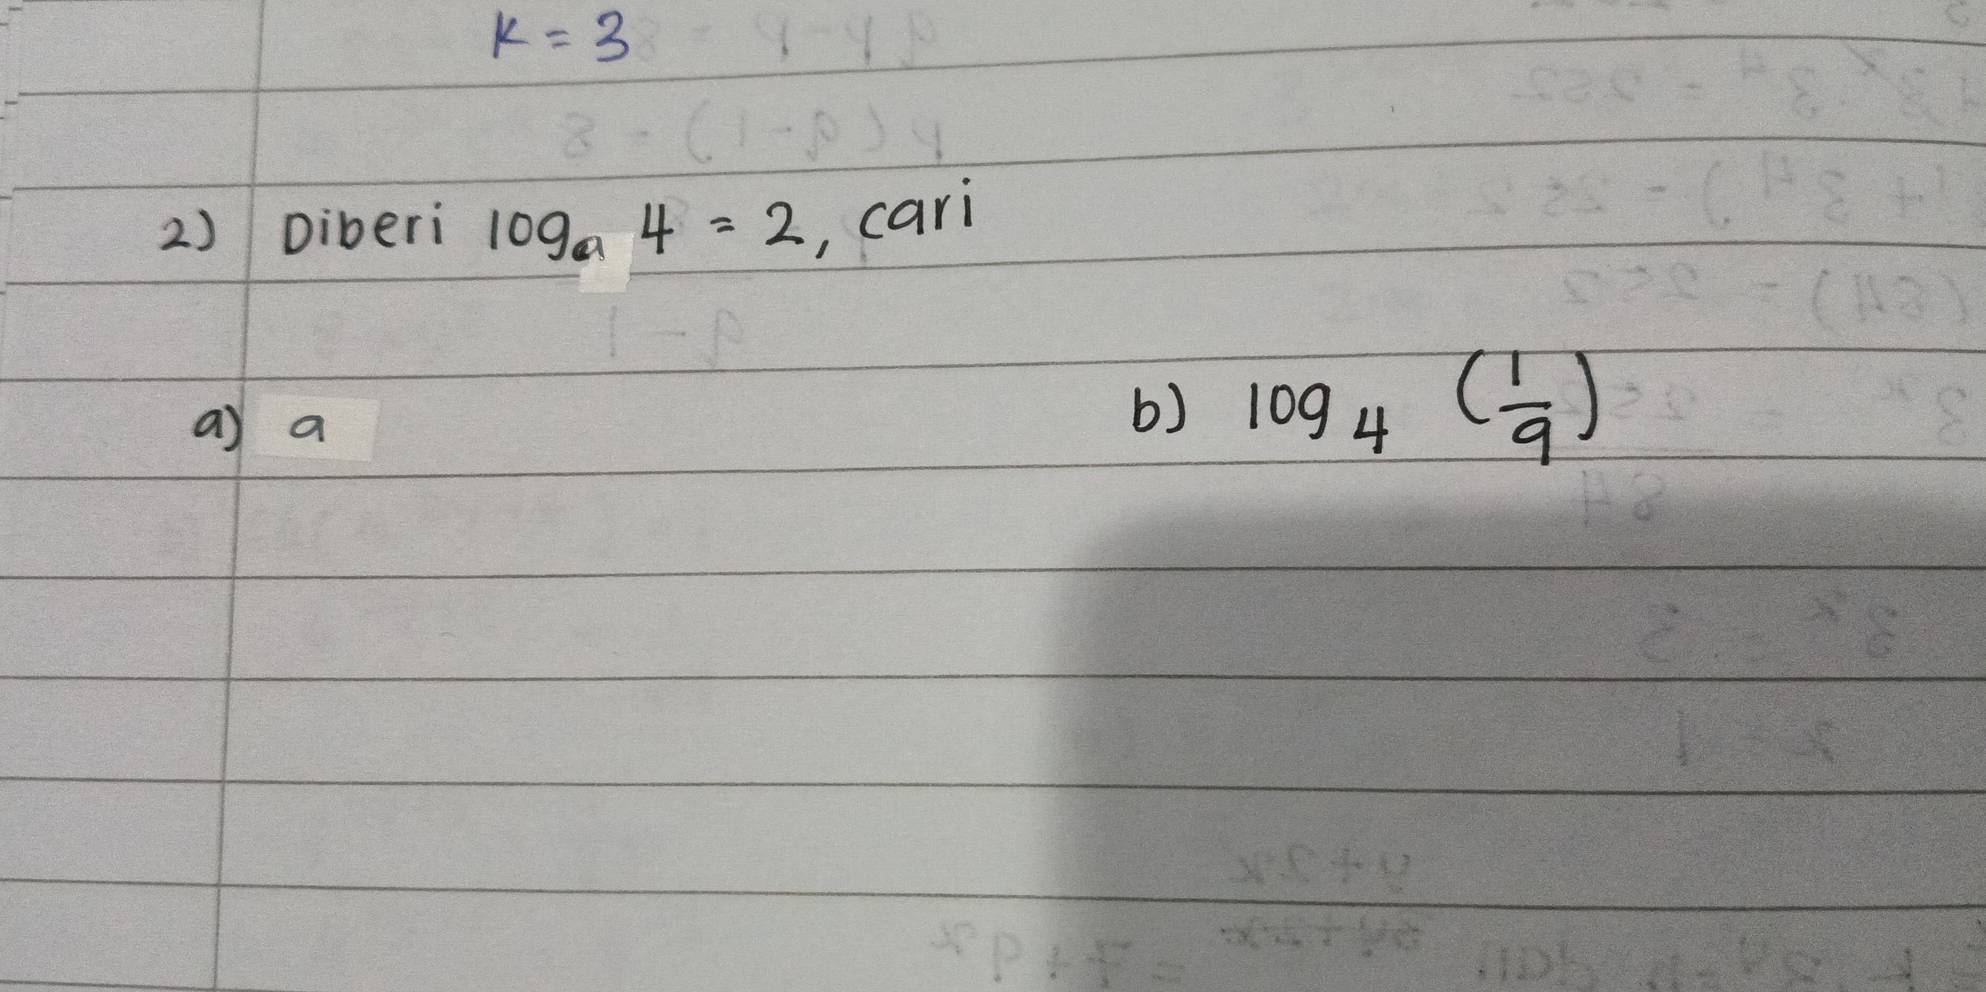 K = 3
2) Diberi log_a 4 = 2, cari
a) a
b) log_4 (1/9)